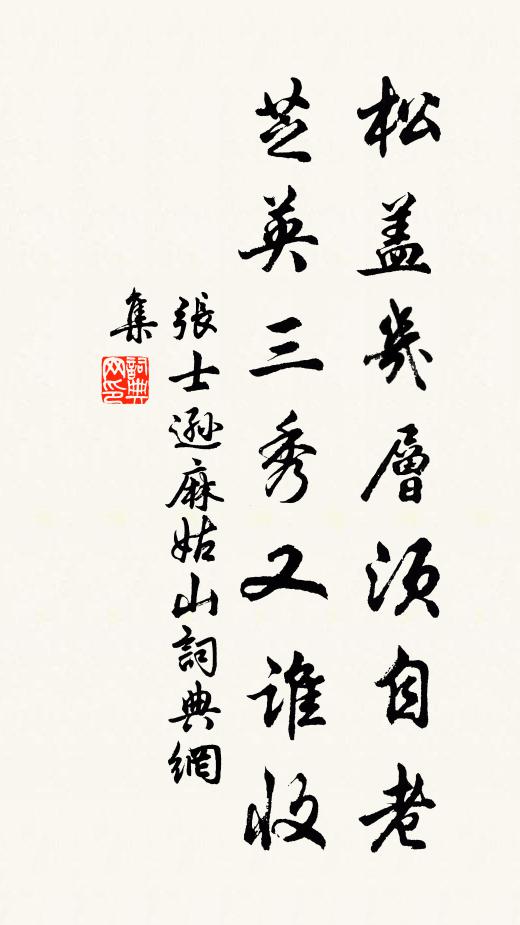 松盖幾層須自老
芝英三秀又誰收
張士遜麻姑山詞典網
集
詞典
网印